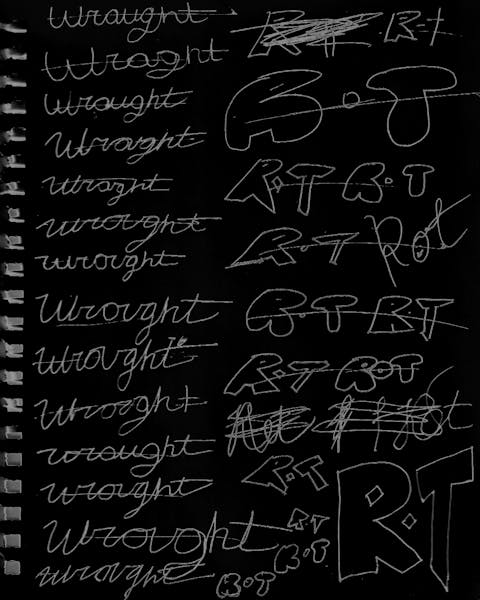 Wraught
Wraght
Wraught
Wraught
Wraght
wrought
wrought
Wrought
Wrought
Wrought
wrought
wrought
Wrought
wrought
R·t
R·T
R·T R·T
R·T Rot
R·T RT
R·T R·T
R·T
R·T
R·T
R·T
R·T